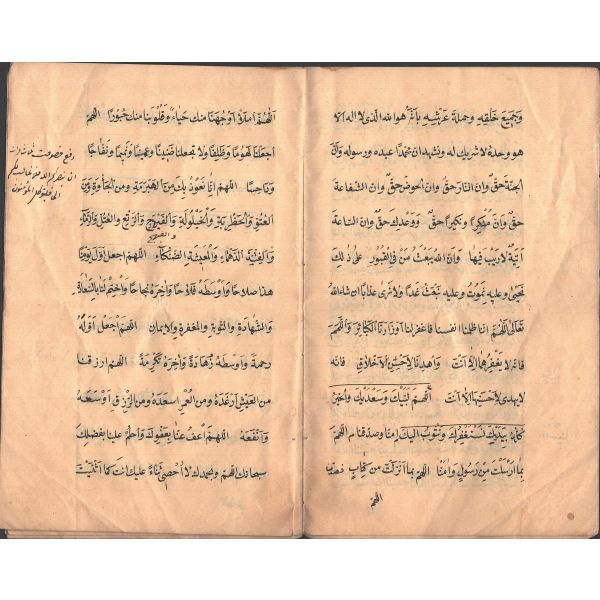 وجميع خلقه وحملة عرشه بأنه هو الله الذي لا اله الا
هو وحده لا شريك له ونشهد ان محمدا عبده ورسوله وان
الجنة حق وان النار حق وان الحوض حق وان الشفاعة
حق وان منكرا ونكيرا حق ووعدك حق وان الساعة
آتية لا ريب فيها وان الله يبعث من في القبور على ذلك
نحيى وعليه نموت وعليه نبعث غدا ولا نرى عذابا ان شاء الله
تعالى اللهم انا ظلمنا انفسنا فاغفر لنا اوزارنا الكبائر واللمم
فانه لا يغفرهما الا انت واهدنا لاحسن الاخلاق فانه
لا يهدي لاحسنها الا انت اللهم لبيك وسعديك والخير
كله بيديك نستغفرك ونتوب اليك امنا وصدقنا اللهم
بما ارسلت من رسول وامنا اللهم بما انزلت من كتاب فصدقنا
اللهم
اللهم املأ اوجهنا منك حياء وقلوبنا منك حبورا اللهم
اجعلنا لهوما ولا تجعلنا
اللهم انا نعوذ بك من
والخيلولة
والفتنة الدهماء والمعيشة الضنكاء اللهم اجعل اول يومنا
هذا صلاحا واوسطه فلاحا واخره نجاحا واختم لنا بالسعادة
والشهادة والتوبة والمغفرة والايمان اللهم اجعل اوله
رحمة واوسطه زهادة واخره تكرمة اللهم ارزقنا
من العيش ارغده ومن العمر اسعده ومن الرزق اوسعه
وانفعه اللهم اعف عنا بعفوك واحلم علينا بفضلك
سبحانك اللهم وبحمدك لا احصي ثناء عليك انت كما اثنيت